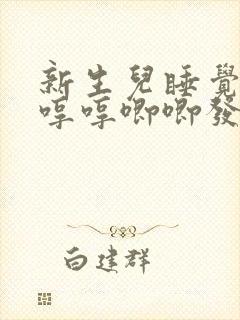 新生兒睡覺
哼哼唧唧發
白建群